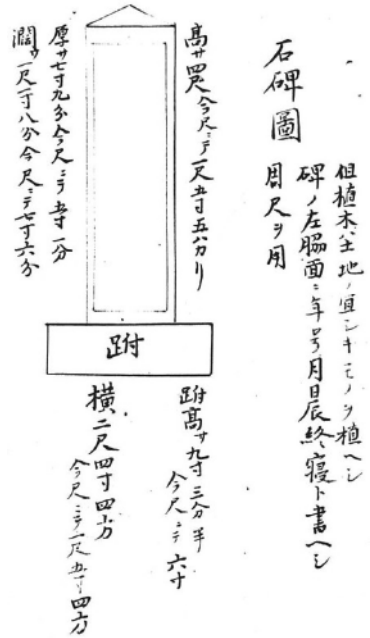 石碑圖
周尺ヲ用
但植木ハ土地ノ宜シキモノヲ植ヘシ
碑ノ左脇面ニ年号月日辰終寝ト書ヘシ
高サ四尺今尺ニテ一尺五寸五六カリ
厚サ七寸九分今尺ニテ五寸一分
濶サ一尺一寸八分今尺ニテ七寸六分
趺
趺高サ九寸三分半
今尺ニテ六寸
横二尺四寸四方
今尺ニテ一尺五寸四方